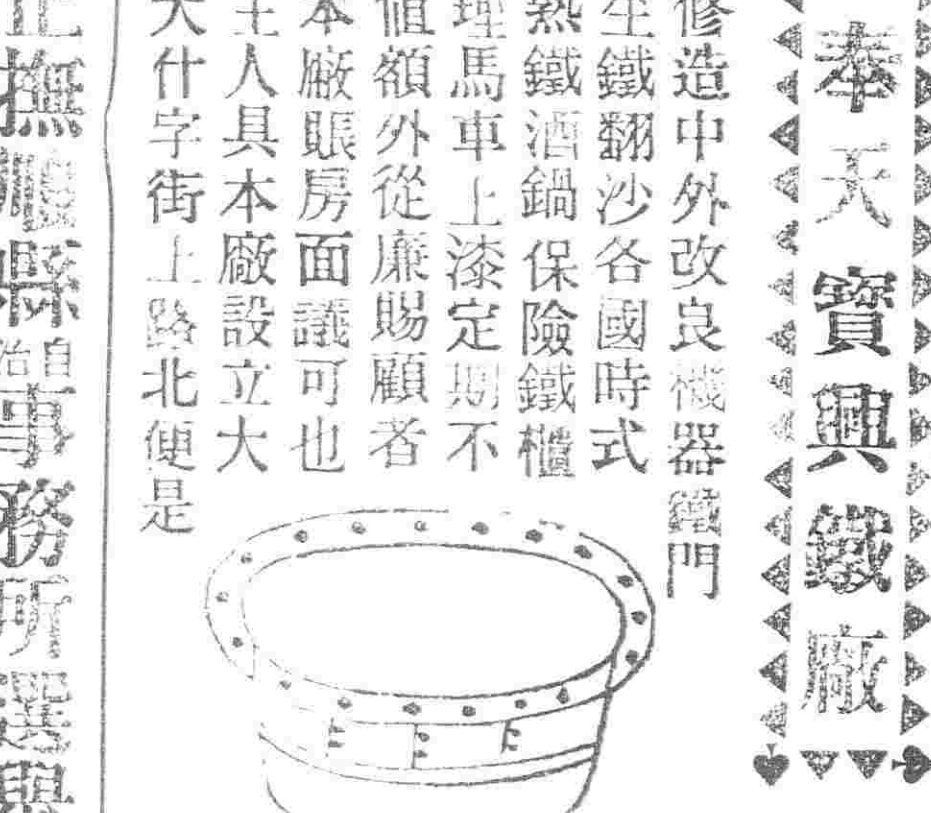 奉天寶興鐵廠
修造中外改良機器鐵門
生鐵翻沙各國時式
熱鐵酒鍋保險鐵櫃
理馬車上漆定期不
值額外從廉賜顧者
本廠賬房面議可也
主人具本廠設立大
大什字街上路北便是
正撫順縣自治事務所選舉